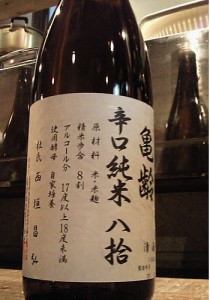 亀齢
辛口純米 八拾
清酒
原材料 米・米麹
精米歩合 8割
アルコール分 17度以上18度未満
使用酵母 自家培養
杜氏 西垣昌弘